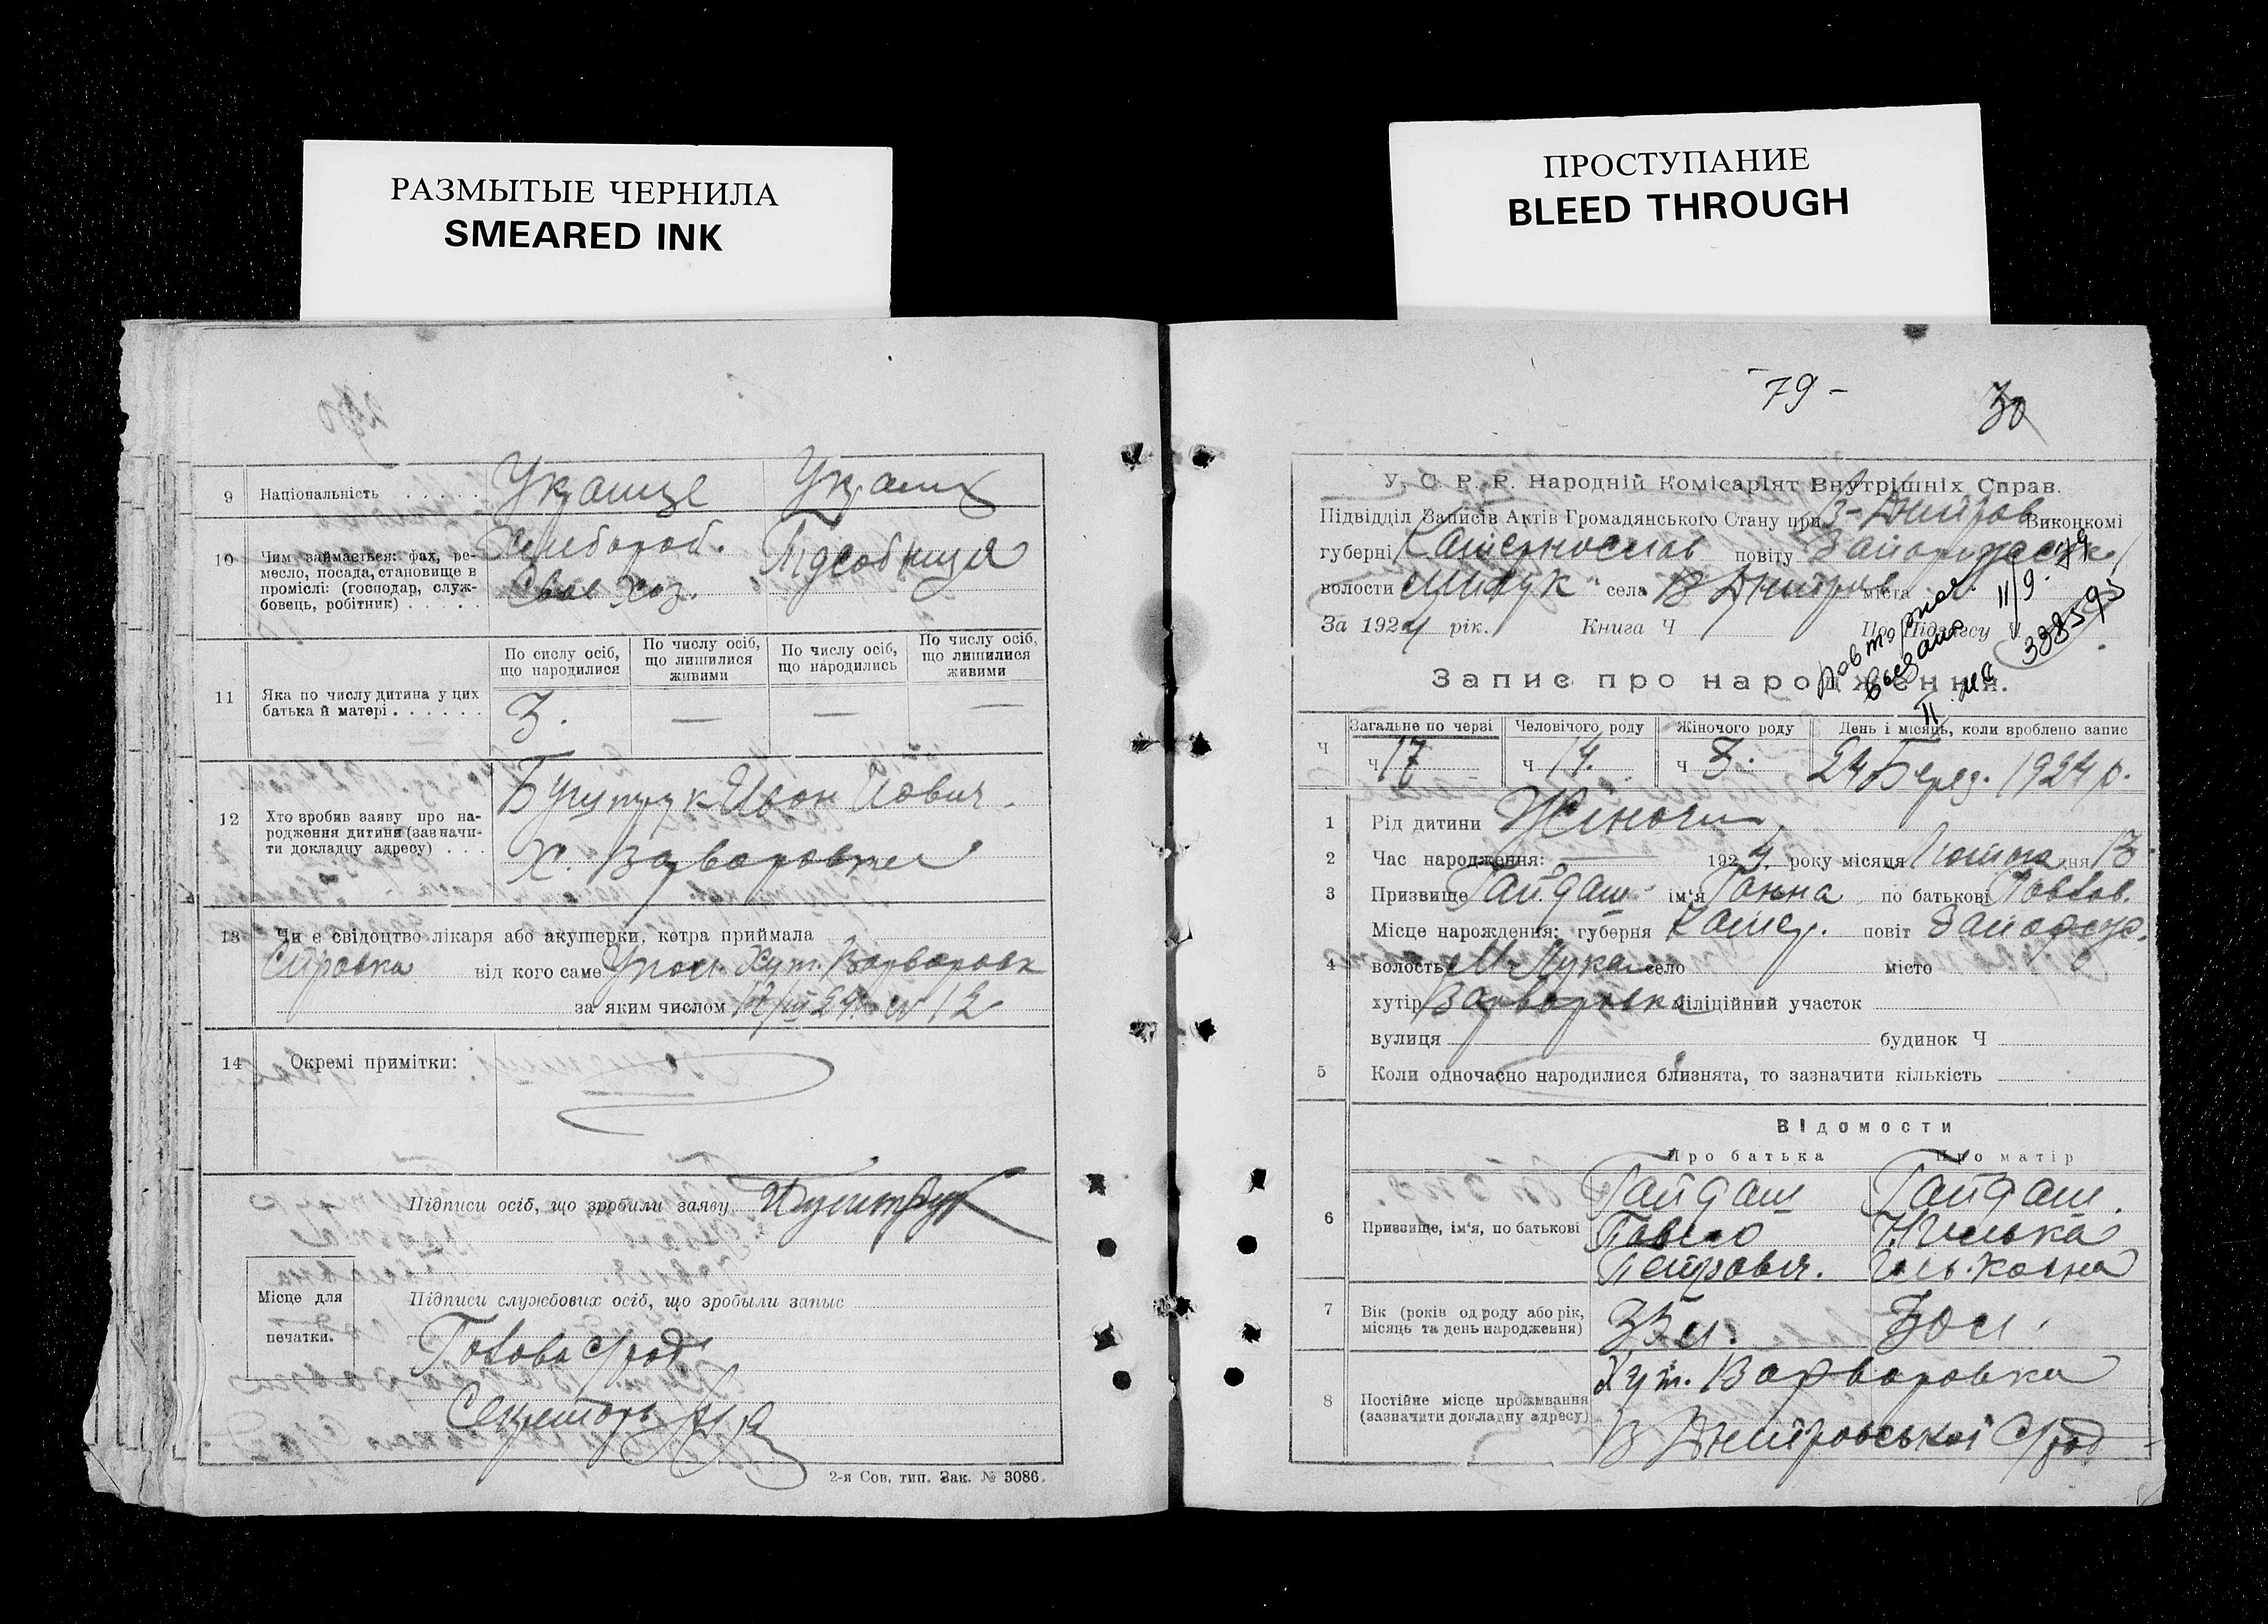 РАЗМЫТЫЕ ЧЕРНИЛА
SMEARED INK
ПРОСТУПАНИЕ
BLEED THROUGH
9 Національність . . . . .
10 Чим займається: фах, ре-
месло, посада, становище в
проміслі: (господар, служ-
бовець, робітник) . . . . .
Своє Хоз.
По сислу осіб,
що народилися
По числу осіб,
що лишилися
живими
По числу осіб,
що народились
По числу осіб,
що лишилися
живими
11 Яка по числу дитина у цих
батька й матері . . . . . .
3. — — —
12 Хто зробив заяву про на-
родження дитини (зазначи-
ти докладну адресу) . . .
Іван
Х. Варваровка
13 Чи є свідоцтво лікаря або акушерки, котра приймала
Справка від кого саме Хут. Варваровк
за яким числом
14 Окремі примітки:
Підписи осіб, що зробили заяву
Місце для
печатки.
Підписи службових осіб, що зробыли запыс
Голова с/рад
Секретарь
2-я Сов. тип. Зак. № 3086.
- 79 -
30
У. С. Р. Р. Народній Комісаріят Внутрішніх Справ.
Підвідділ Записів Актів Громадянського Стану при В-Дмитров Виконкомі
губерні Катеринослав повіту
волости села В Дмитров міста
За 1924 рік. Книга Ч По Підпису Ч
повторно
выдано
II/9.
338595
II
Запис про народження.
Ч
Загальне по черзі
Человічого роду
Жіночого роду
День і місяць, коли зроблено запис
ч 17
ч 14.
ч 3.
24 Берез. 1924 р.
1 Рід дитини Жіноч
2 Час народження: 1924. року місяця Лютого дня 13
3 Призвище Гайдаш ім'я Ганна по батькові Павлов.
4 Місце нарождення: губерня Катер. повіт Запорізьк.
волость М-Лука село місто
хутір Варваровка міліційний участок
вулиця будинок Ч
5 Коли одночасно народилися близнята, то зазначити кількість
Відомости
Про батька
Про матір
6 Призвище, ім'я, по батькові
Гайдаш
Павло
Петрович.
Гайдаш.
7 Вік (років од роду або рік,
місяць та день народження)
33 л.
30 л.
8 Постійне місце проживання
(зазначити докладну адресу)
Хут. Варваровка
В Дмитровської С/рад